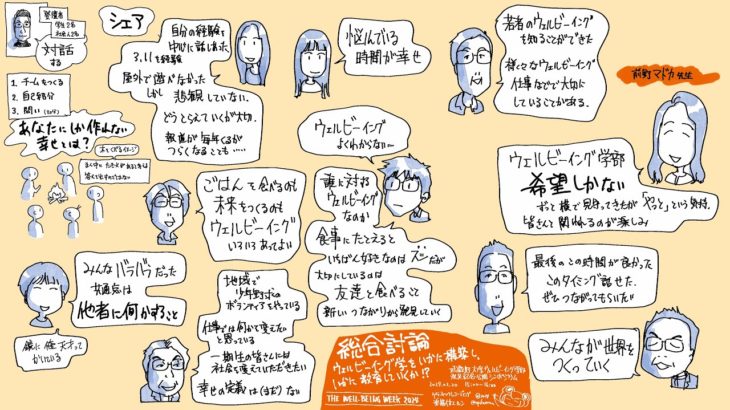 登壇者
学生2名
社会人2名
対話
する
1. チームをつくる
2. 自己紹介
3. 問い
あなたにしか作れない
幸せとは?
シェア
自分の経験を
中心に話しあった
3.11を経験
屋外で遊べなかった
しかし 悲観していない.
どうとらえていくかが大切.
報道が毎年くるが
つらくなることも……
悩んでいる
時間が幸せ
若者のウェルビーイング
を知ることができた
様々なウェルビーイング
仕事などで大切に
していることがある.
前野マドカ先生
ウェルビーイング学部
希望しかない
ずっと横で見守ってきたが「やっと」という気持.
皆さんと関われるのが楽しみ
ウェルビーイング
よくわからない〜
誰に対する
ウェルビーイング
なのか
食事にたとえると
いちばん好きなのは ズーだが
大切にしているのは
友達と食べること
新しいつながりから発見していく
ごはんを食べるのも
未来をつくるのも
ウェルビーイング
いろいろあってよい
みんなバラバラだった
共通点は
他者に何かすること
地域で
少年野球の
ボランティアをやっている
仕事では何かを変えたい
と思っている
一期生の皆さんには
社会を変えていただきたい
幸せの定義は(ほぼ)ない
最後のこの時間が良かった
このタイミングで話せた.
ぜひつながってもらいたい!!
みんなが世界を
つくっていく
総合討論
ウェルビーイング学をいかに構築し、
いかに教育していくか!?
武蔵野大学ウェルビーイング学部
THE WELL-BEING WEEK 2024